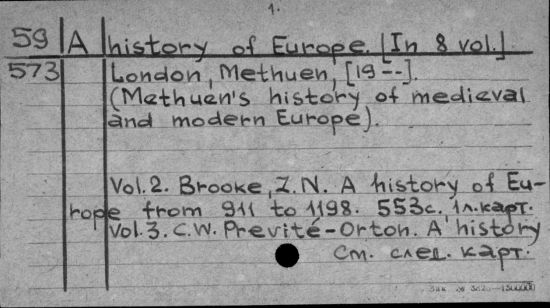 1.
59 A history of Europe. [In 8 vol.]
573 London, Methuen, [19--].
(Methuen's history of medieval
and modern Europe).
Vol.2. Brooke, Z.N. A history of Eu-
rope from 911 to 1198. 553с. 1л.карт.
Vol.3. C.W. Previté-Orton. A history
См. след. карт.